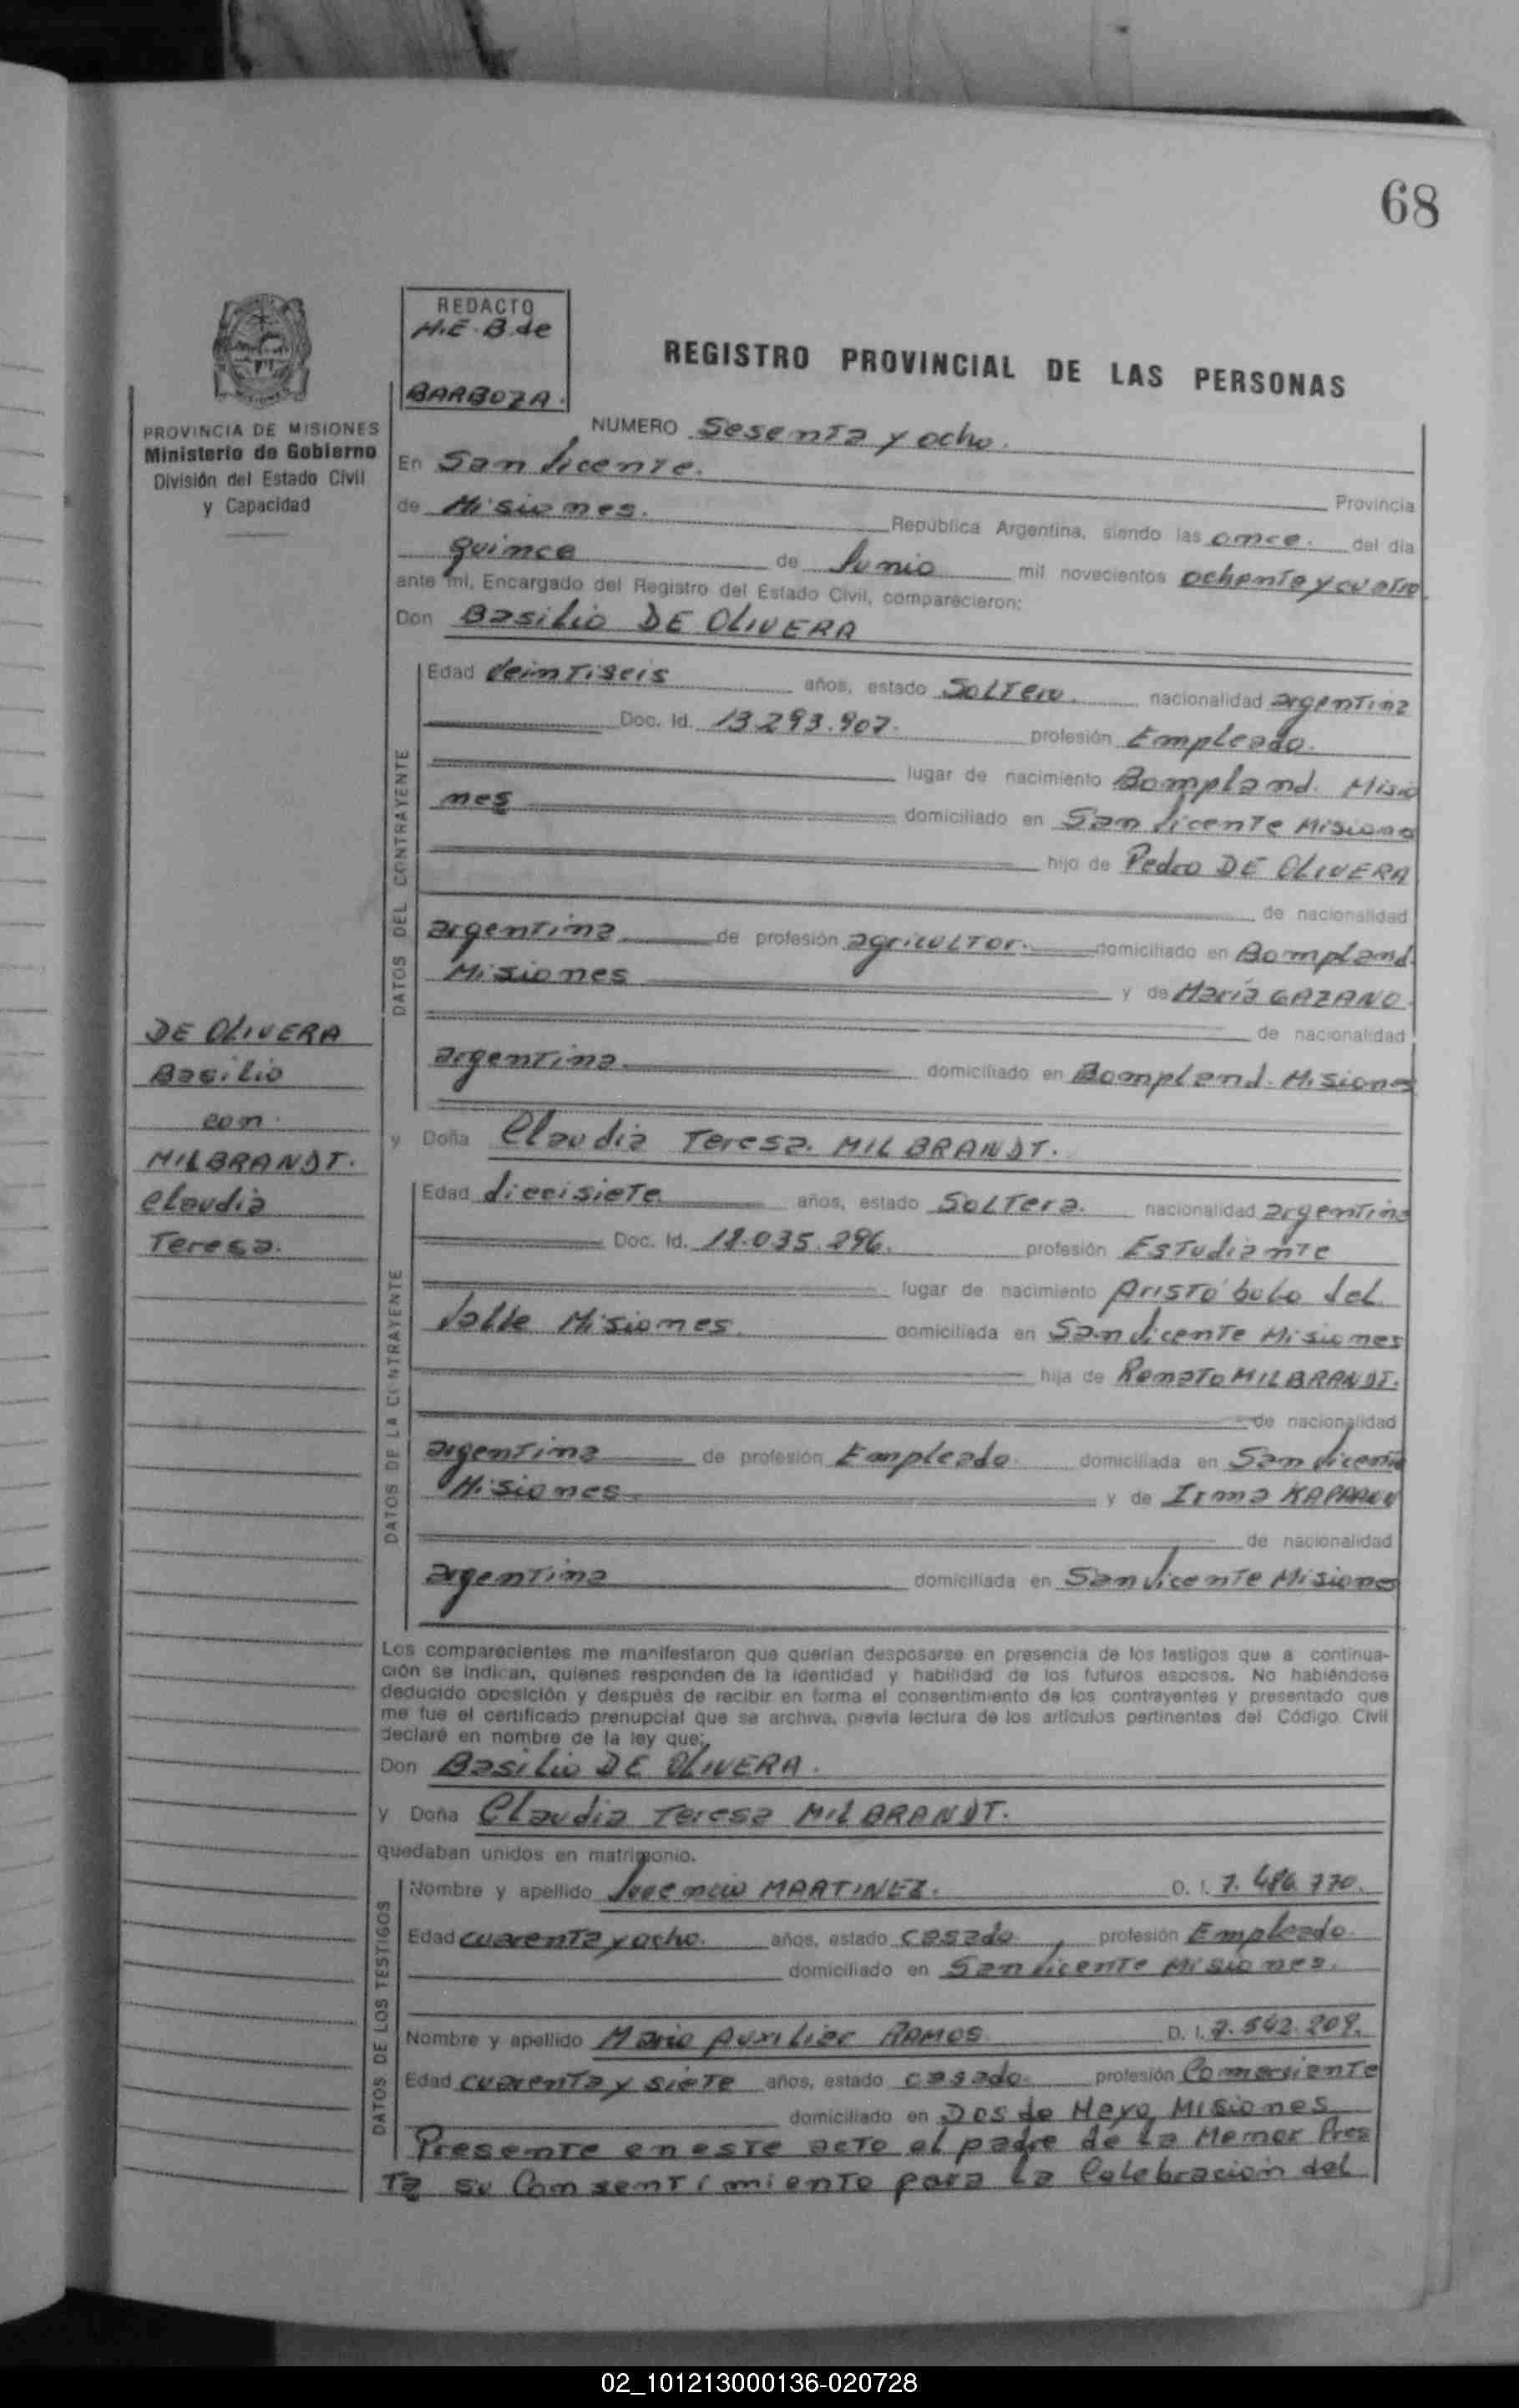 68
REDACTO
M.E.B de
BARBOZA.
REGISTRO PROVINCIAL DE LAS PERSONAS
PROVINCIA DE MISIONES
Ministerio de Gobierno
División del Estado Civil
y Capacidad
NUMERO Sesenta y ocho.
En San Vicente. Provincia
de Misiones. República Argentina, siendo las once. del día
quince de Junio mil novecientos ochenta y cuatro.
ante mí, Encargado del Registro del Estado Civil, comparecieron:
Don Basilio DE OLIVERA
DATOS DEL CONTRAYENTE
Edad Veintiseis años, estado Soltero. nacionalidad argentina
Doc. Id. 13.293.907. profesión Empleado.
lugar de nacimiento Bompland. Misio
nes domiciliado en San Vicente Misiones
hijo de Pedro DE OLIVERA
de nacionalidad
argentina de profesión agricultor. domiciliado en Bompland.
Misiones y de María GAZANO.
de nacionalidad
argentina domiciliado en Bompland. Misiones
DE OLIVERA
Basilio
con.
MILBRANDT.
Claudia
Teresa.
y Doña Claudia Teresa. MILBRANDT.
DATOS DE LA CONTRAYENTE
Edad diecisiete años, estado Soltera. nacionalidad argentina
Doc. Id. 18.035.296. profesión Estudiante
lugar de nacimiento Aristóbulo del
Valle Misiones. domiciliada en San Vicente Misiones
hija de Renato MILBRANDT.
de nacionalidad
argentina de profesión Empleado. domiciliada en San Vicente
Misiones y de Irma
de nacionalidad
argentina domiciliada en San Vicente Misiones
Los comparecientes me manifestaron que querían desposarse en presencia de los testigos que a continua-
ción se indican, quienes responden de la identidad y habilidad de los futuros esposos. No habiéndose
deducido oposición y después de recibir en forma el consentimiento de los contrayentes y presentado que
me fue el certificado prenupcial que se archiva, previa lectura de los artículos pertinentes del Código Civil
declaré en nombre de la ley que:
Don Basilio DE OLIVERA.
y Doña Claudia Teresa MILBRANDT.
quedaban unidos en matrimonio.
DATOS DE LOS TESTIGOS
Nombre y apellido MARTINEZ. D. I. 7.486.770.
Edad cuarenta y ocho. años, estado casado, profesión Empleado.
domiciliado en San Vicente Misiones.
Nombre y apellido Mario Auxiliar RAMOS D. I. 7.542.209.
Edad cuarenta y siete años, estado casado. profesión Comerciante
domiciliado en Dos de Mayo, Misiones
Presente en este acto el padre de la Menor Pres
ta su Consentimiento para la Celebración del
02_101213000136-020728